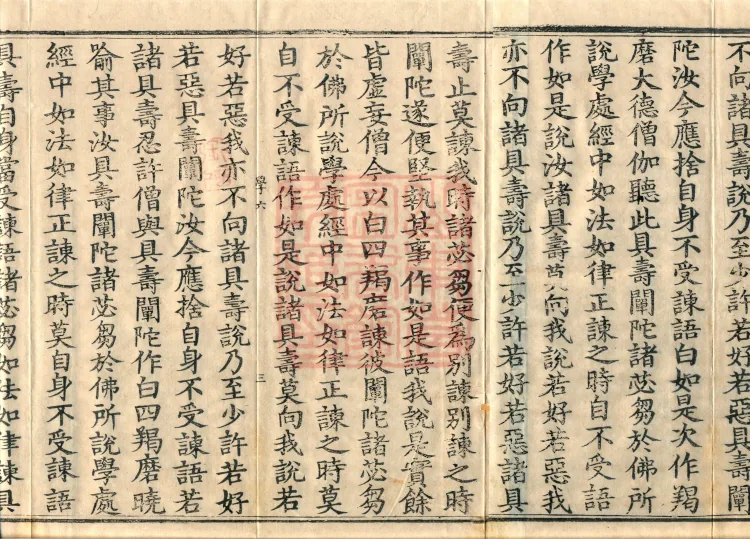 不向諸具壽說乃至少許若好若惡具壽闡
陀汝今應捨自身不受諫語白如是次作羯
磨大德僧伽聽此具壽闡陀諸苾芻於佛所
說學處經中如法如律正諫之時自不受語
作如是說汝諸具壽莫向我說若好若惡我
亦不向諸具壽說乃至少許若好若惡諸具
壽止莫諫我時諸苾芻便為別諫別諫之時
闡陀遂便堅執其事作如是語我說是實餘
皆虛妄僧今以白四羯磨諫彼闡陀諸苾芻
於佛所說學處經中如法如律正諫之時莫
自不受諫語作如是說諸具壽莫向我說若
學六
三
好若惡我亦不向諸具壽說乃至少許若好
若惡具壽闡陀汝今應捨自身不受諫語若
諸具壽忍許僧與具壽闡陀作白四羯磨曉
喻其事汝具壽闡陀諸苾芻於佛所說學處
經中如法如律正諫之時莫自身不受諫語
具壽自身當受諫語諸苾芻如法如律諫具